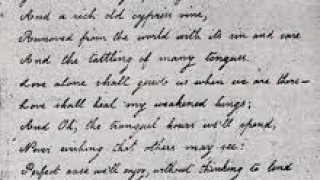 And a rich old cypress vine,
Removed from the world with its sin and care
And the tattling of many tongues.
Love alone shall guide us when we are there —
Love shall heal my weakened lungs;
And Oh, the tranquil hours we'll spend,
Never wishing that others may see!
Perfect ease we'll enjoy, without thinking to lend